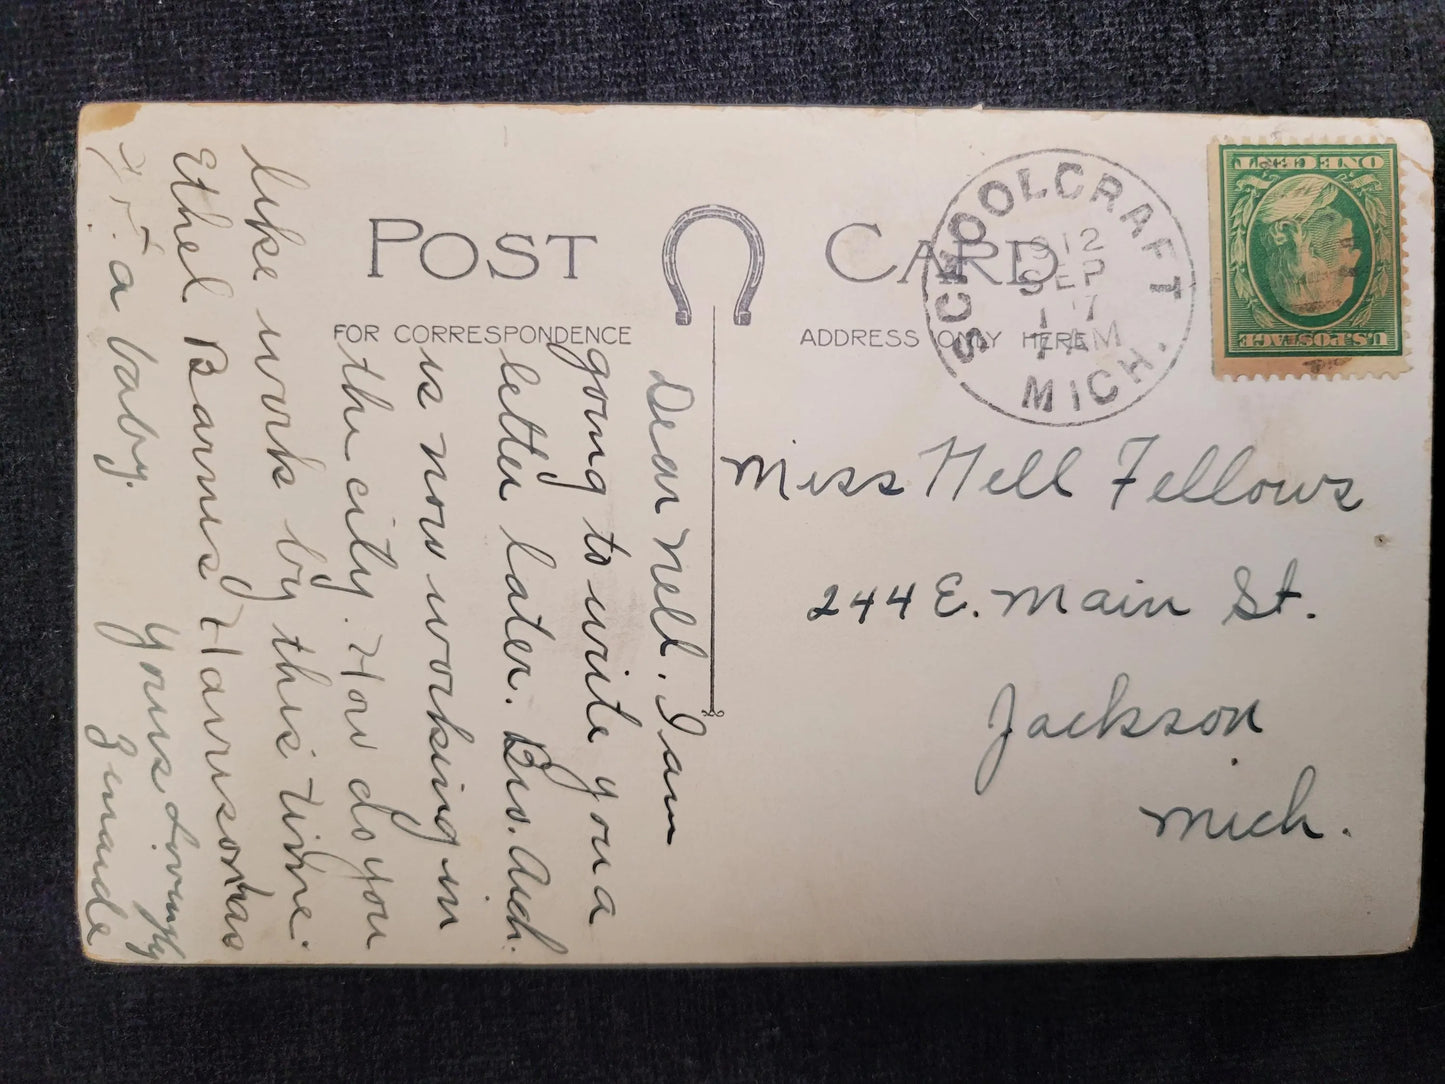 POST CARD
FOR CORRESPONDENCE
ADDRESS ONLY HERE
SCHOOLCRAFT
1912
SEP
17
7 AM
MICH.
ONE CENT
U.S. POSTAGE
Miss Nell Fellows
244 E. Main St.
Jackson
Mich.
Dear Nell. I am
going to write you a
letter later. Bro. And.
is now working in
the city. How do you
like work by this time.
Ethel Barnes Harrison has
a baby.
Yours Lovingly